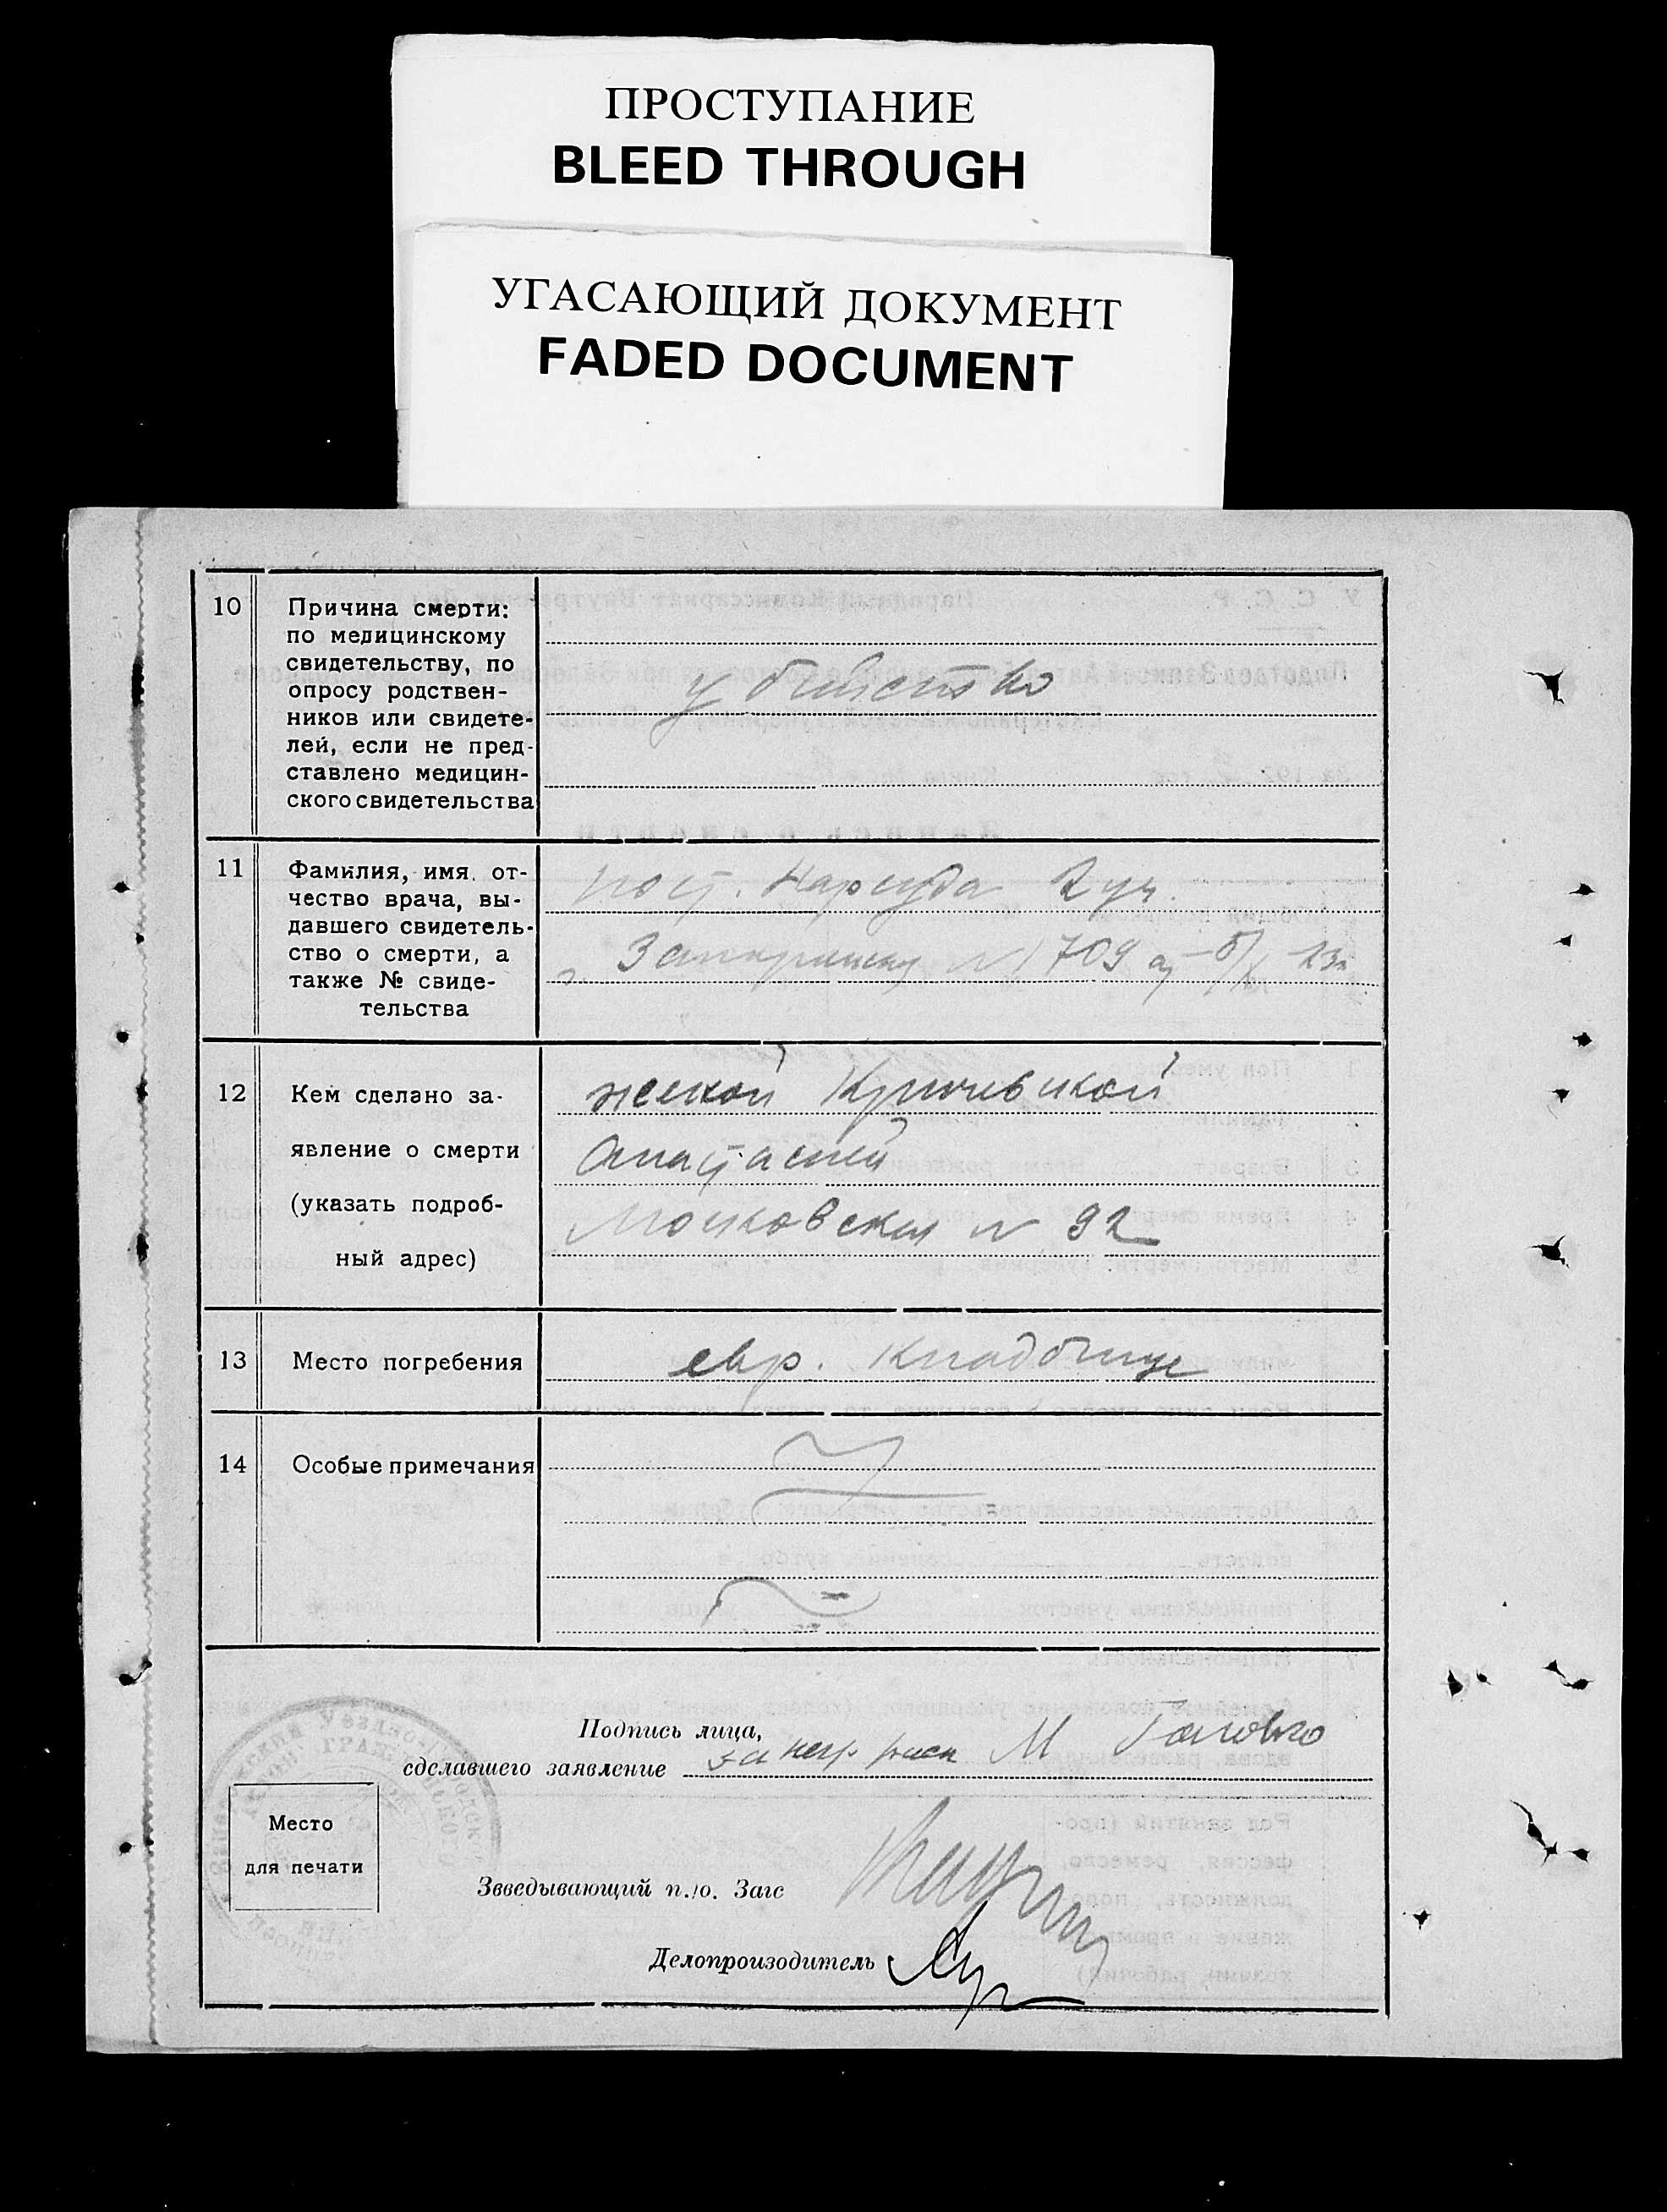 ПРОСТУПАНИЕ
BLEED THROUGH
УГАСАЮЩИЙ ДОКУМЕНТ
FADED DOCUMENT
10 Причина смерти:
по медицинскому
свидетельству, по
опросу родствен-
ников или свидете-
лей, если не пред-
ставлено медицин-
ского свидетельства
убийство
11 Фамилия, имя, от-
чество врача, вы-
давшего свидетель-
ство о смерти, а
также № свиде-
тельства
пост. Нарсуда 2 уч.
г. Запорожья № 1709 от 23
12 Кем сделано за-
явление о смерти
(указать подроб-
ный адрес)
женой Кричевской
Анастасией
Московская № 92
13 Место погребения
евр. кладбище
14 Особые примечания
Подпись лица,
сделавшего заявление за негр расп М Головко
Место
для печати
Зведывающий п./о. Загс
Делопроизводитель